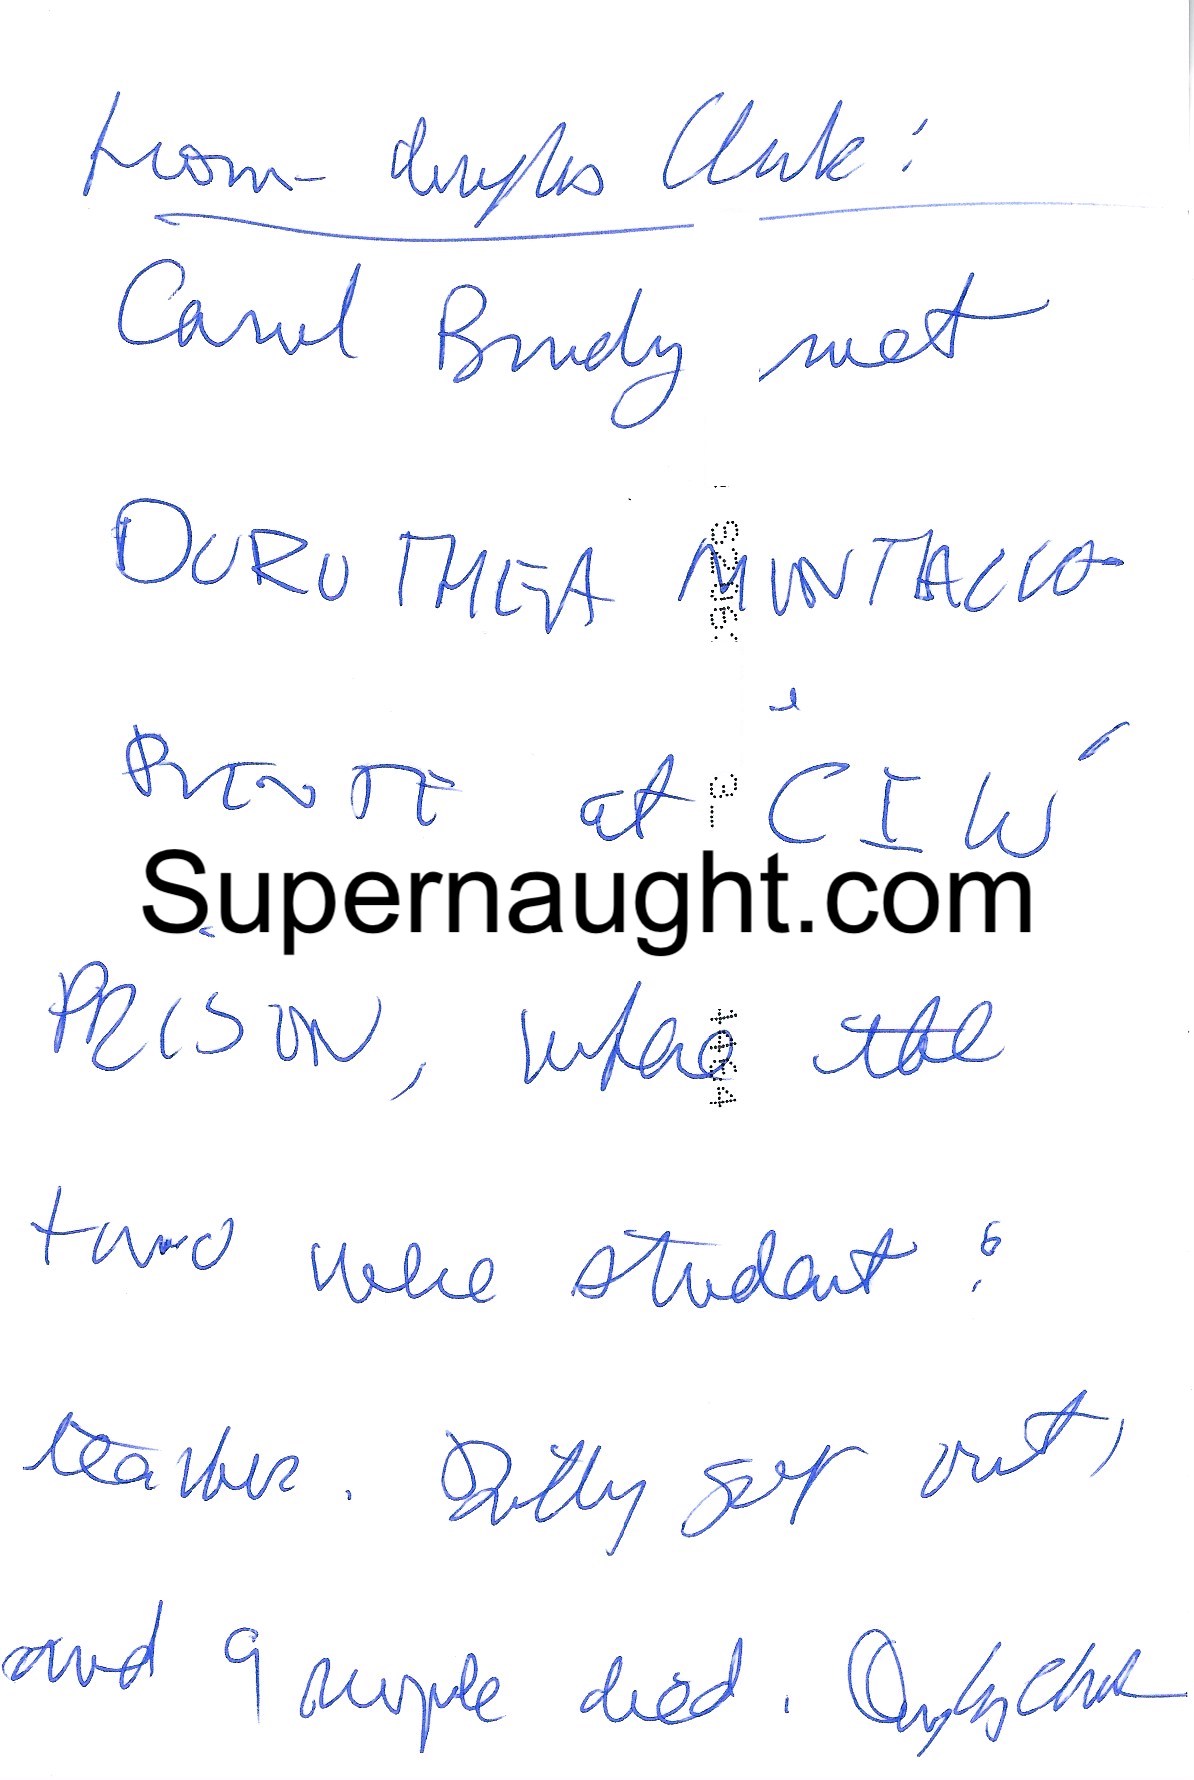 from douglas Clark:
Carol Bundy met
DOROTHEA MONTALVO
PUENTE at "CIW"
Supernaught.com
PRISON, where the
two were student &
teacher. Dotty got out,
and 9 people died. Douglas Clark